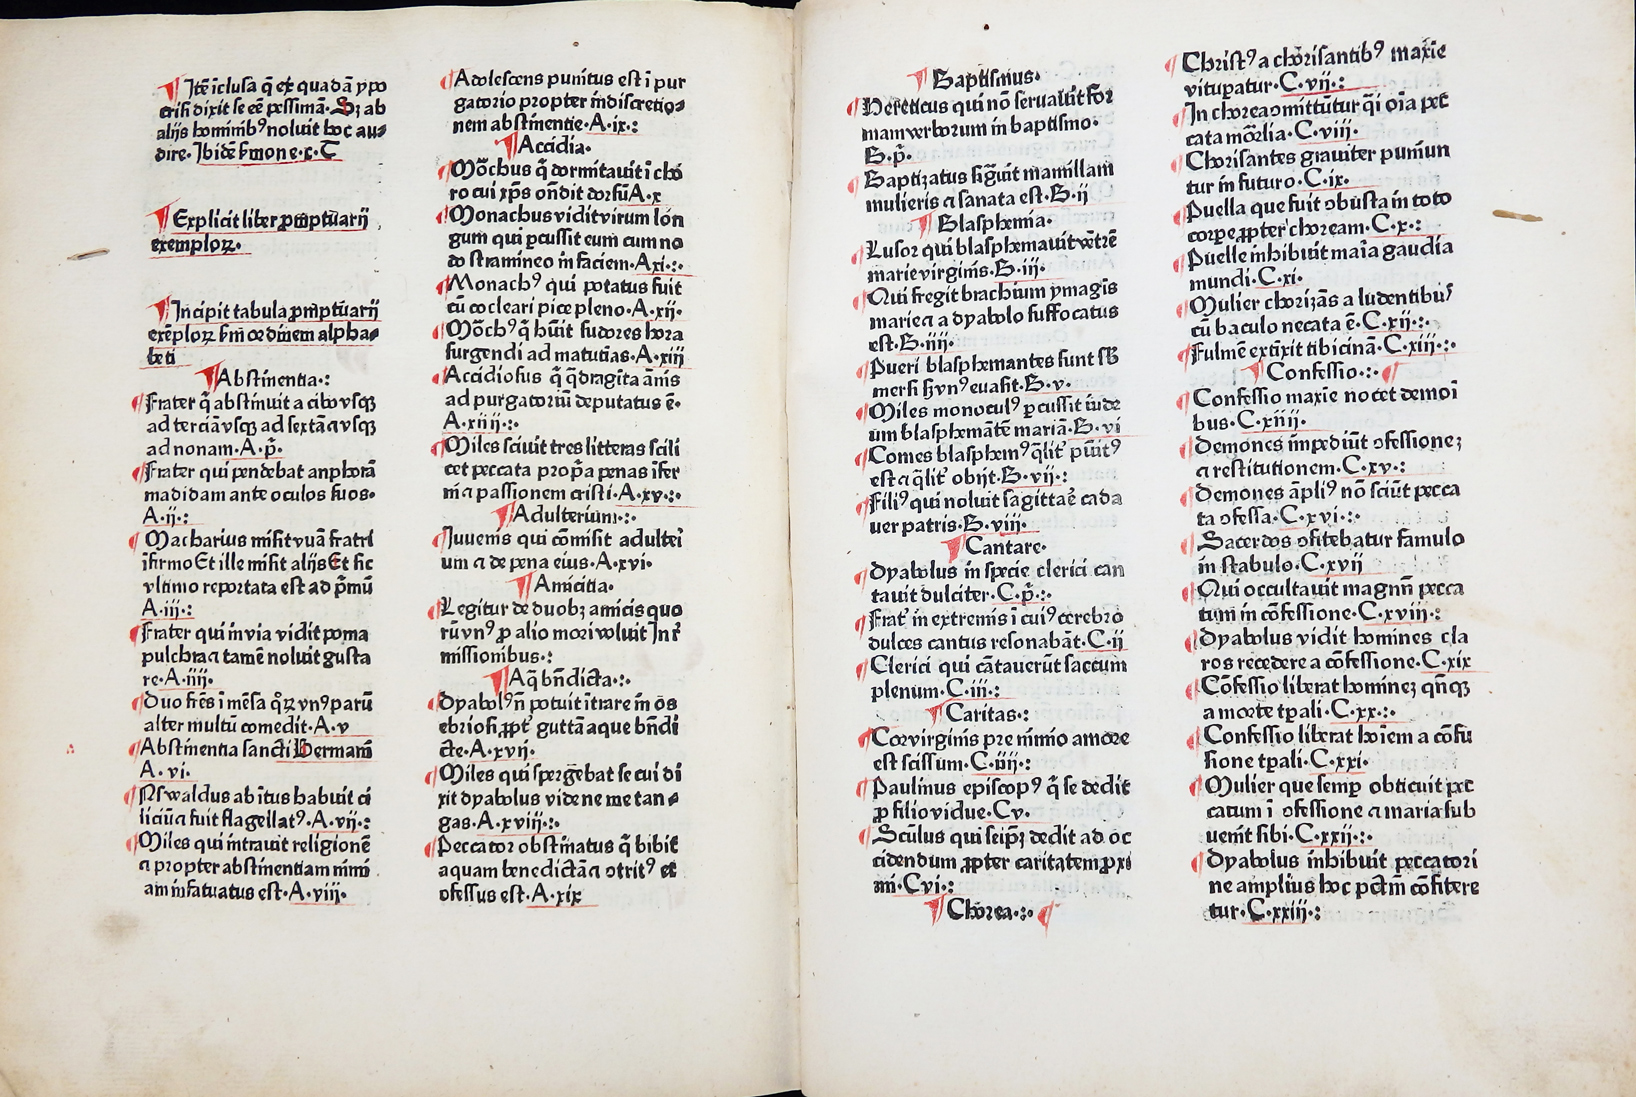 Itē iclusa q̄ ex quadā ypo
crisi dixit se eē pessimā. Sꝫ ab
alijs hominibꝰ noluit hoc au⸗
dire. Ibidē ẜmone.x. T
Explicit liber ꝓmptuarij
exemploꝝ.
Incipit tabula ꝓmptuarij
exēploꝝ ẜm ordinem alpha⸗
beti
Abstinentia.:
Frater q̄ abstinuit a cibo vsqꝫ
ad terciā vsqꝫ ad sextā ⁊ vsqꝫ
ad nonam. A. p̄.
Frater qui pendebat anphorā
madidam ante oculos suos.
A.ij.:
Macharius misit vuā fratri
īfirmo Et ille misit alijs Et sic
vltimo reportata est ad p̄mū
A.iij.:
Frater qui in via vidit poma
pulchra ⁊ tamē noluit gusta
re. A.iiij.
Duo frēs ī mēsa qͦꝝ vnꝰ parū
alter multū comedit. A.v
Abstinentia sancti Hermani
A.vi.
Oswaldus ab ītus habuit ci
liciū ⁊ fuit flagellatꝰ. A.vij.:
Miles qui intrauit religionē
⁊ propter abstinentiam nimi
am infatuatus est. A.viij.
Adolescens punitus est ī pur
gatorio propter indiscretio⸗
nem abstinentie. A.ix.:
Accidia.
Mōchus q̄ dormitauit ī cho
ro cui xp̄s ōndit dorsū A.x
Monachus vidit virum lon
gum qui ꝑcussit eum cum no
do stramineo in faciem. A xi.:.
Monachꝰ qui potatus fuit
cū cocleari pice pleno. A.xij.
Mōchꝰ q̄ hūit sudores hora
surgendi ad matutīas. A.xiij
Accidiosus q̄ q̄dragīta ānis
ad purgatoriū deputatus ē.
A.xiiij.:.
Miles sciuit tres litteras scili
cet peccata propͥa penas īfer
ni ⁊ passionem cristi. A.xv.:.
Adulterium.:.
Iuuenis qui cōmisit adulteri
um ⁊ de pena eius. A.xvi.
Amicitia.
Legitur de duobꝫ amicis quo
rū vnꝰ ꝓ alio mori voluit In r̄
missionibus.:
Aq̄ bn̄dicta.:.
Dyabolꝰ n̄ potuit ītrare in os
ebriosi ꝓpt̄ guttā aque bn̄di
cte. A.xvij.
Miles qui spergebat se cui di
xit dyabolus vide ne me tan⸗
gas. A.xviij.:
Peccator obstinatus q̄ bibit
aquam benedictā ⁊ ꝯtritꝰ et
ꝯfessus est. A.xix
Baptismus.
Hereticus qui nō seruauit for
mam verborum in baptismo.
B.p̄.
Baptizatus sigūit mamillam
mulieris ⁊ sanata est. B.ij
Blasphemia.
Lusor qui blasphemauit vētrē
marie virginis. B.iij.
Qui fregit brachium ymagis
marie ⁊ a dyabolo suffocatus
est. B.iiij.
Pueri blasphemantes sunt sb̄
mersi ⁊ vnꝰ euasit. B.v.
Miles monoculꝰ ꝑcussit iude
um blasphemātē mariā. B.vi
Comes blasphemꝰ q̄lit̄ pūitꝰ
est ⁊ q̄lit̄ obijt. B.vij.:
Filiꝰ qui noluit sagittaē cada
uer patris. B.viij.
Cantare.
Dyabolus in specie clerici can
tauit dulciter. C.p̄.:.
Frat̄ in extremis ī cuiꝰ cerebro
dulces cantus resonabāt. C.ij
Clerici qui cātauerūt saccum
plenum. C.iij.:
Caritas.:
Cor virginis pre nimio amore
est scissum. C.iiij.:
Paulinus episcopꝰ q̄ se dedit
ꝓ filio vidue. C v.
Scūlus qui seipꝫ dedit ad oc
cidendum ꝓpter caritatem ꝓxi
mi. C vi.:
Chorea.:.
Christꝰ a chorisantibꝰ maxīe
vituꝑatur. C.vij.:
In chorea ꝯmittūtur q̄i oīa pec
cata mōrlia. C.viij.
Chorisantes grauiter puniun
tur in futuro. C.ix.
Puella que fuit ꝯbusta in toto
corꝑe ꝓpter choream. C.x.:
Puelle inhibuit maīa gaudia
mundi. C.xi.
Mulier chorizās a ludentibus
cū baculo necata ē. C.xij.:.
Fulmē extīxit tibicinā. C.xiij.:.
Confessio.:.
Confessio maxīe nocet demoī
bus. C.xiiij.:
Demones impediūt ꝯfessioneꝫ
⁊ restitutionem. C.xv.:
Demones āpliꝰ nō sciūt pecca
ta ꝯfessa. C.xvi.:.
Sacerdos ꝯfitebatur famulo
in stabulo. C.xvij
Qui occultauit magnū pecca
tum in cōfessione. C.xviij.:
Dyabolus vidit homines cla
ros recedere a cōfessione. C.xix
Cōfessio liberat homineꝫ qn̄qꝫ
a morte tꝑali. C.xx.:.
Confessio liberat hoīem a cōfu
sione tꝑali. C.xxi.
Mulier que semꝑ obticuit pec
catum ī ꝯfessione ⁊ maria sub
uenit sibi. C.xxij.:.
Dyabolus inhibuit peccatori
ne amplius hoc pctm̄ cōfitere
tur. C.xxiij.: